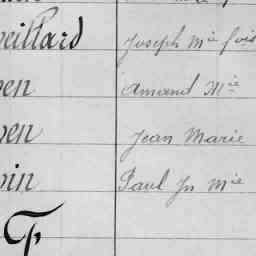 eillard Joseph Mie fois
en Amand Mie
en Jean Marie
in Paul Jn Mie